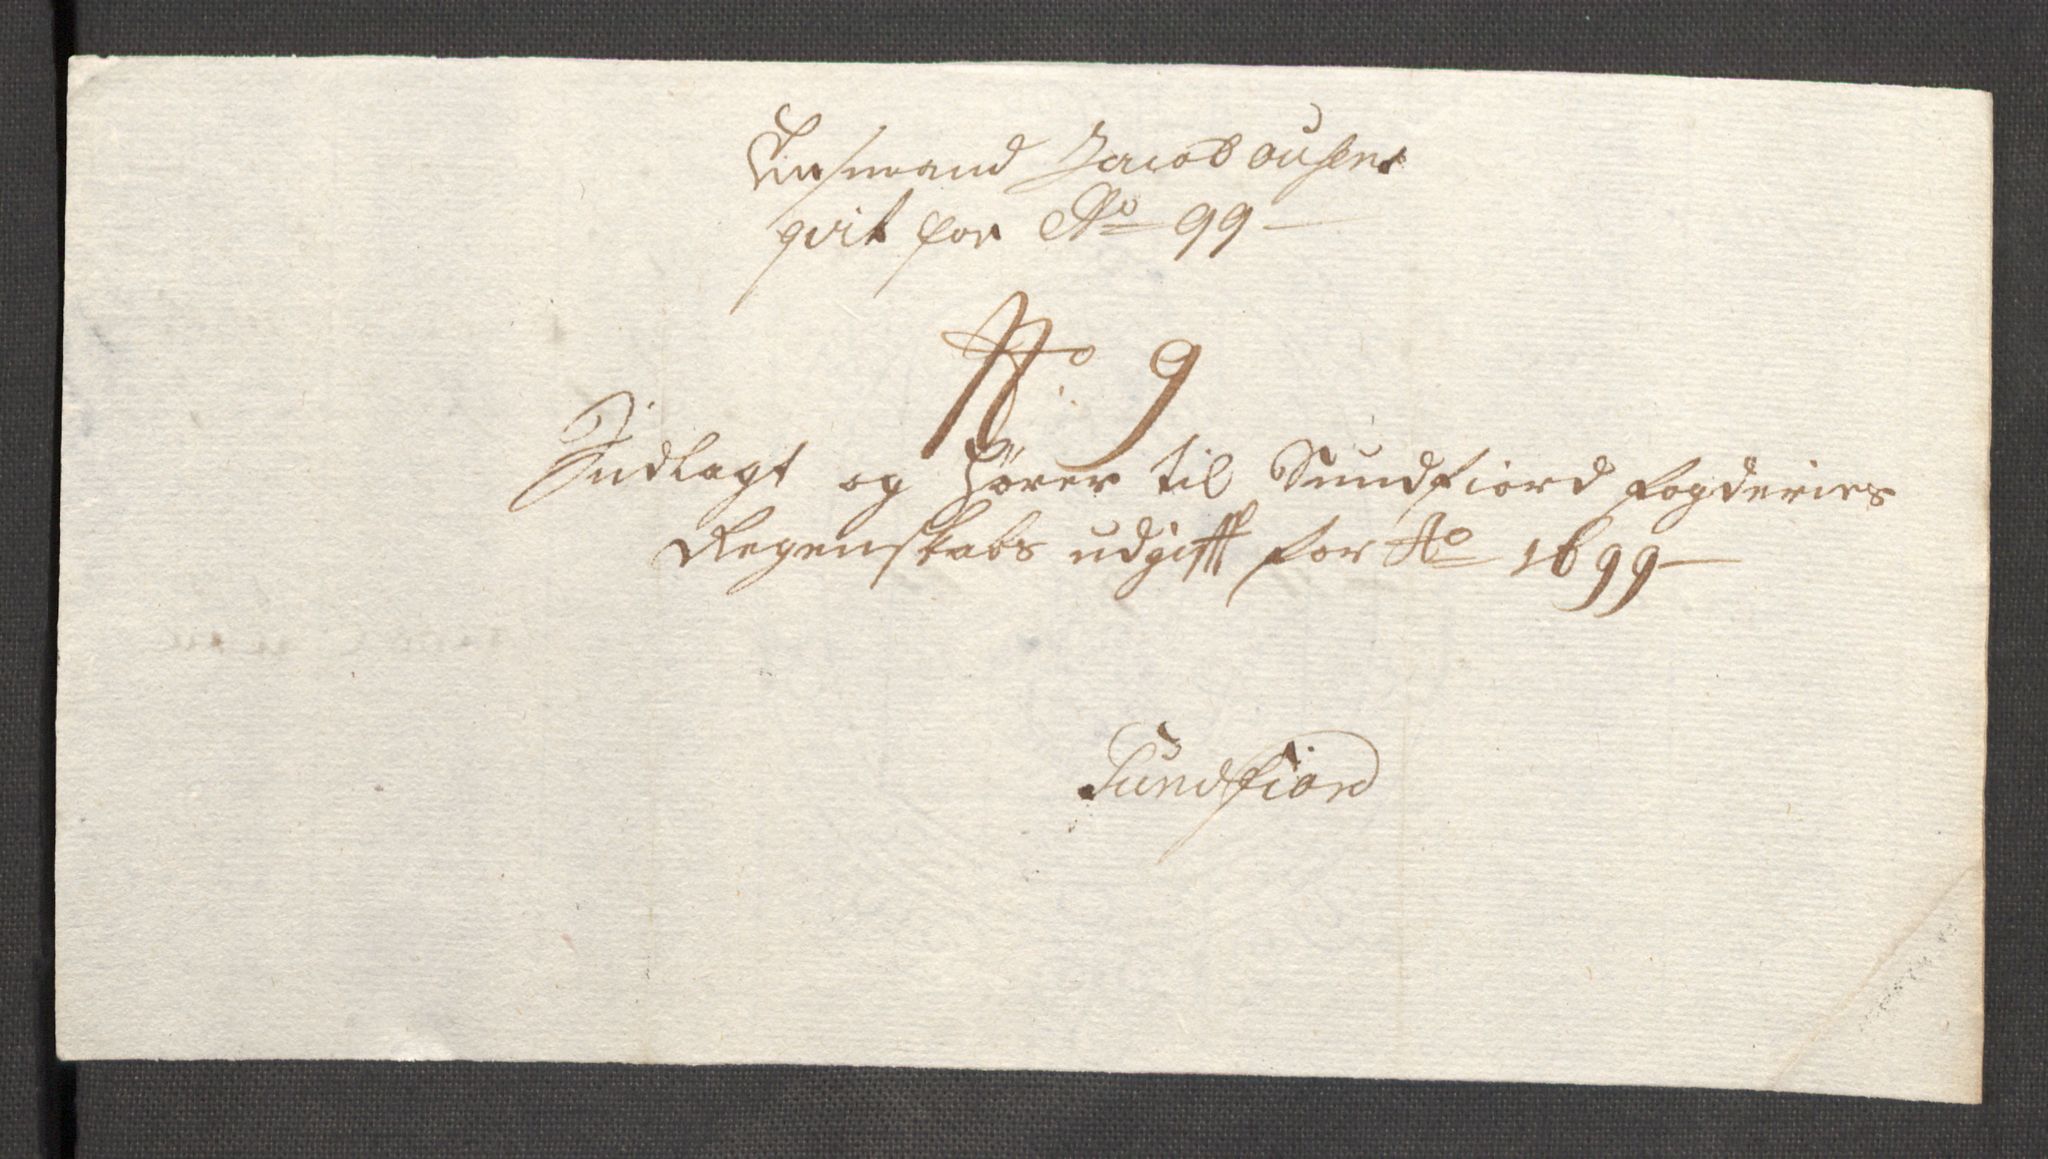 Lensmand Jacob ousens
qvit for Ao 99
No 9
Indlagt og hører til Sundfiord fogderies
Regenskabs udgifft for Ao 1699
Sundfiord